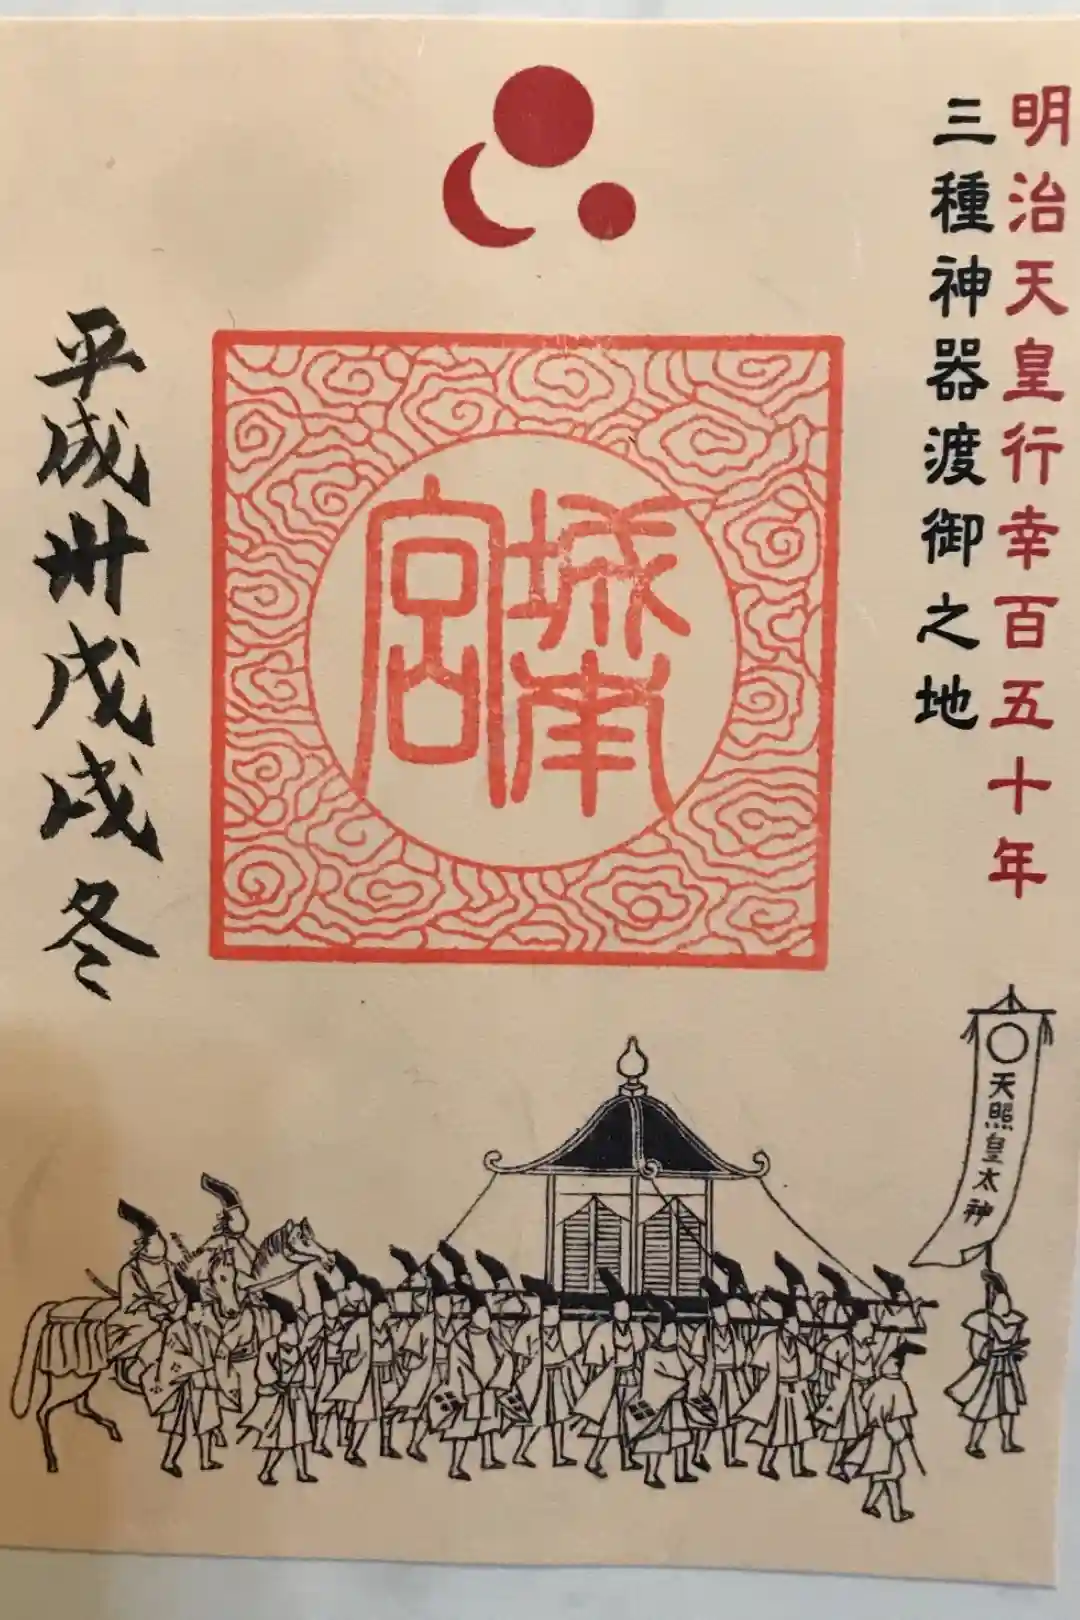 明治天皇行幸百五十年
三種神器渡御之地
城南宮
平成卅戊戌冬
天照皇太神